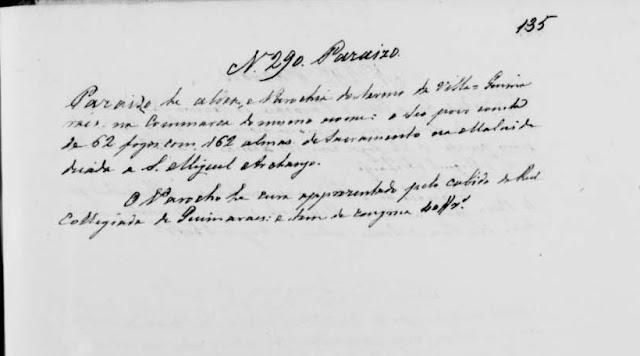 135
Nº 290. Paraizo.
Paraizo he aldea, e Parochia do termo da Villa de Guima
raes, na Commarca do mesmo nome: o seo povo consta
de 62 fogos com 162 almas de Sacramento na Matriz de
dicada a S. Miguel Archanjo.
O Parocho he cura apprezentado pelo cabido da Real
Collegiada de Guimaraes: e tem de congrua